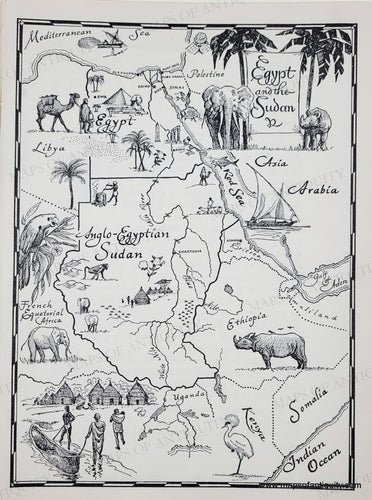 Mediterranean Sea
Palestine
Egypt
and the
Sudan
Egypt
Libya
Asia
Arabia
Red Sea
Anglo-Egyptian
Sudan
KHARTOUM
French
Equatorial
Africa
Gulf of Aden
Somaliland
Ethiopia
Uganda
Kenya
Somalia
Indian
Ocean
www.mapsofantiquity.com
MAPS OF ANTIQUITY